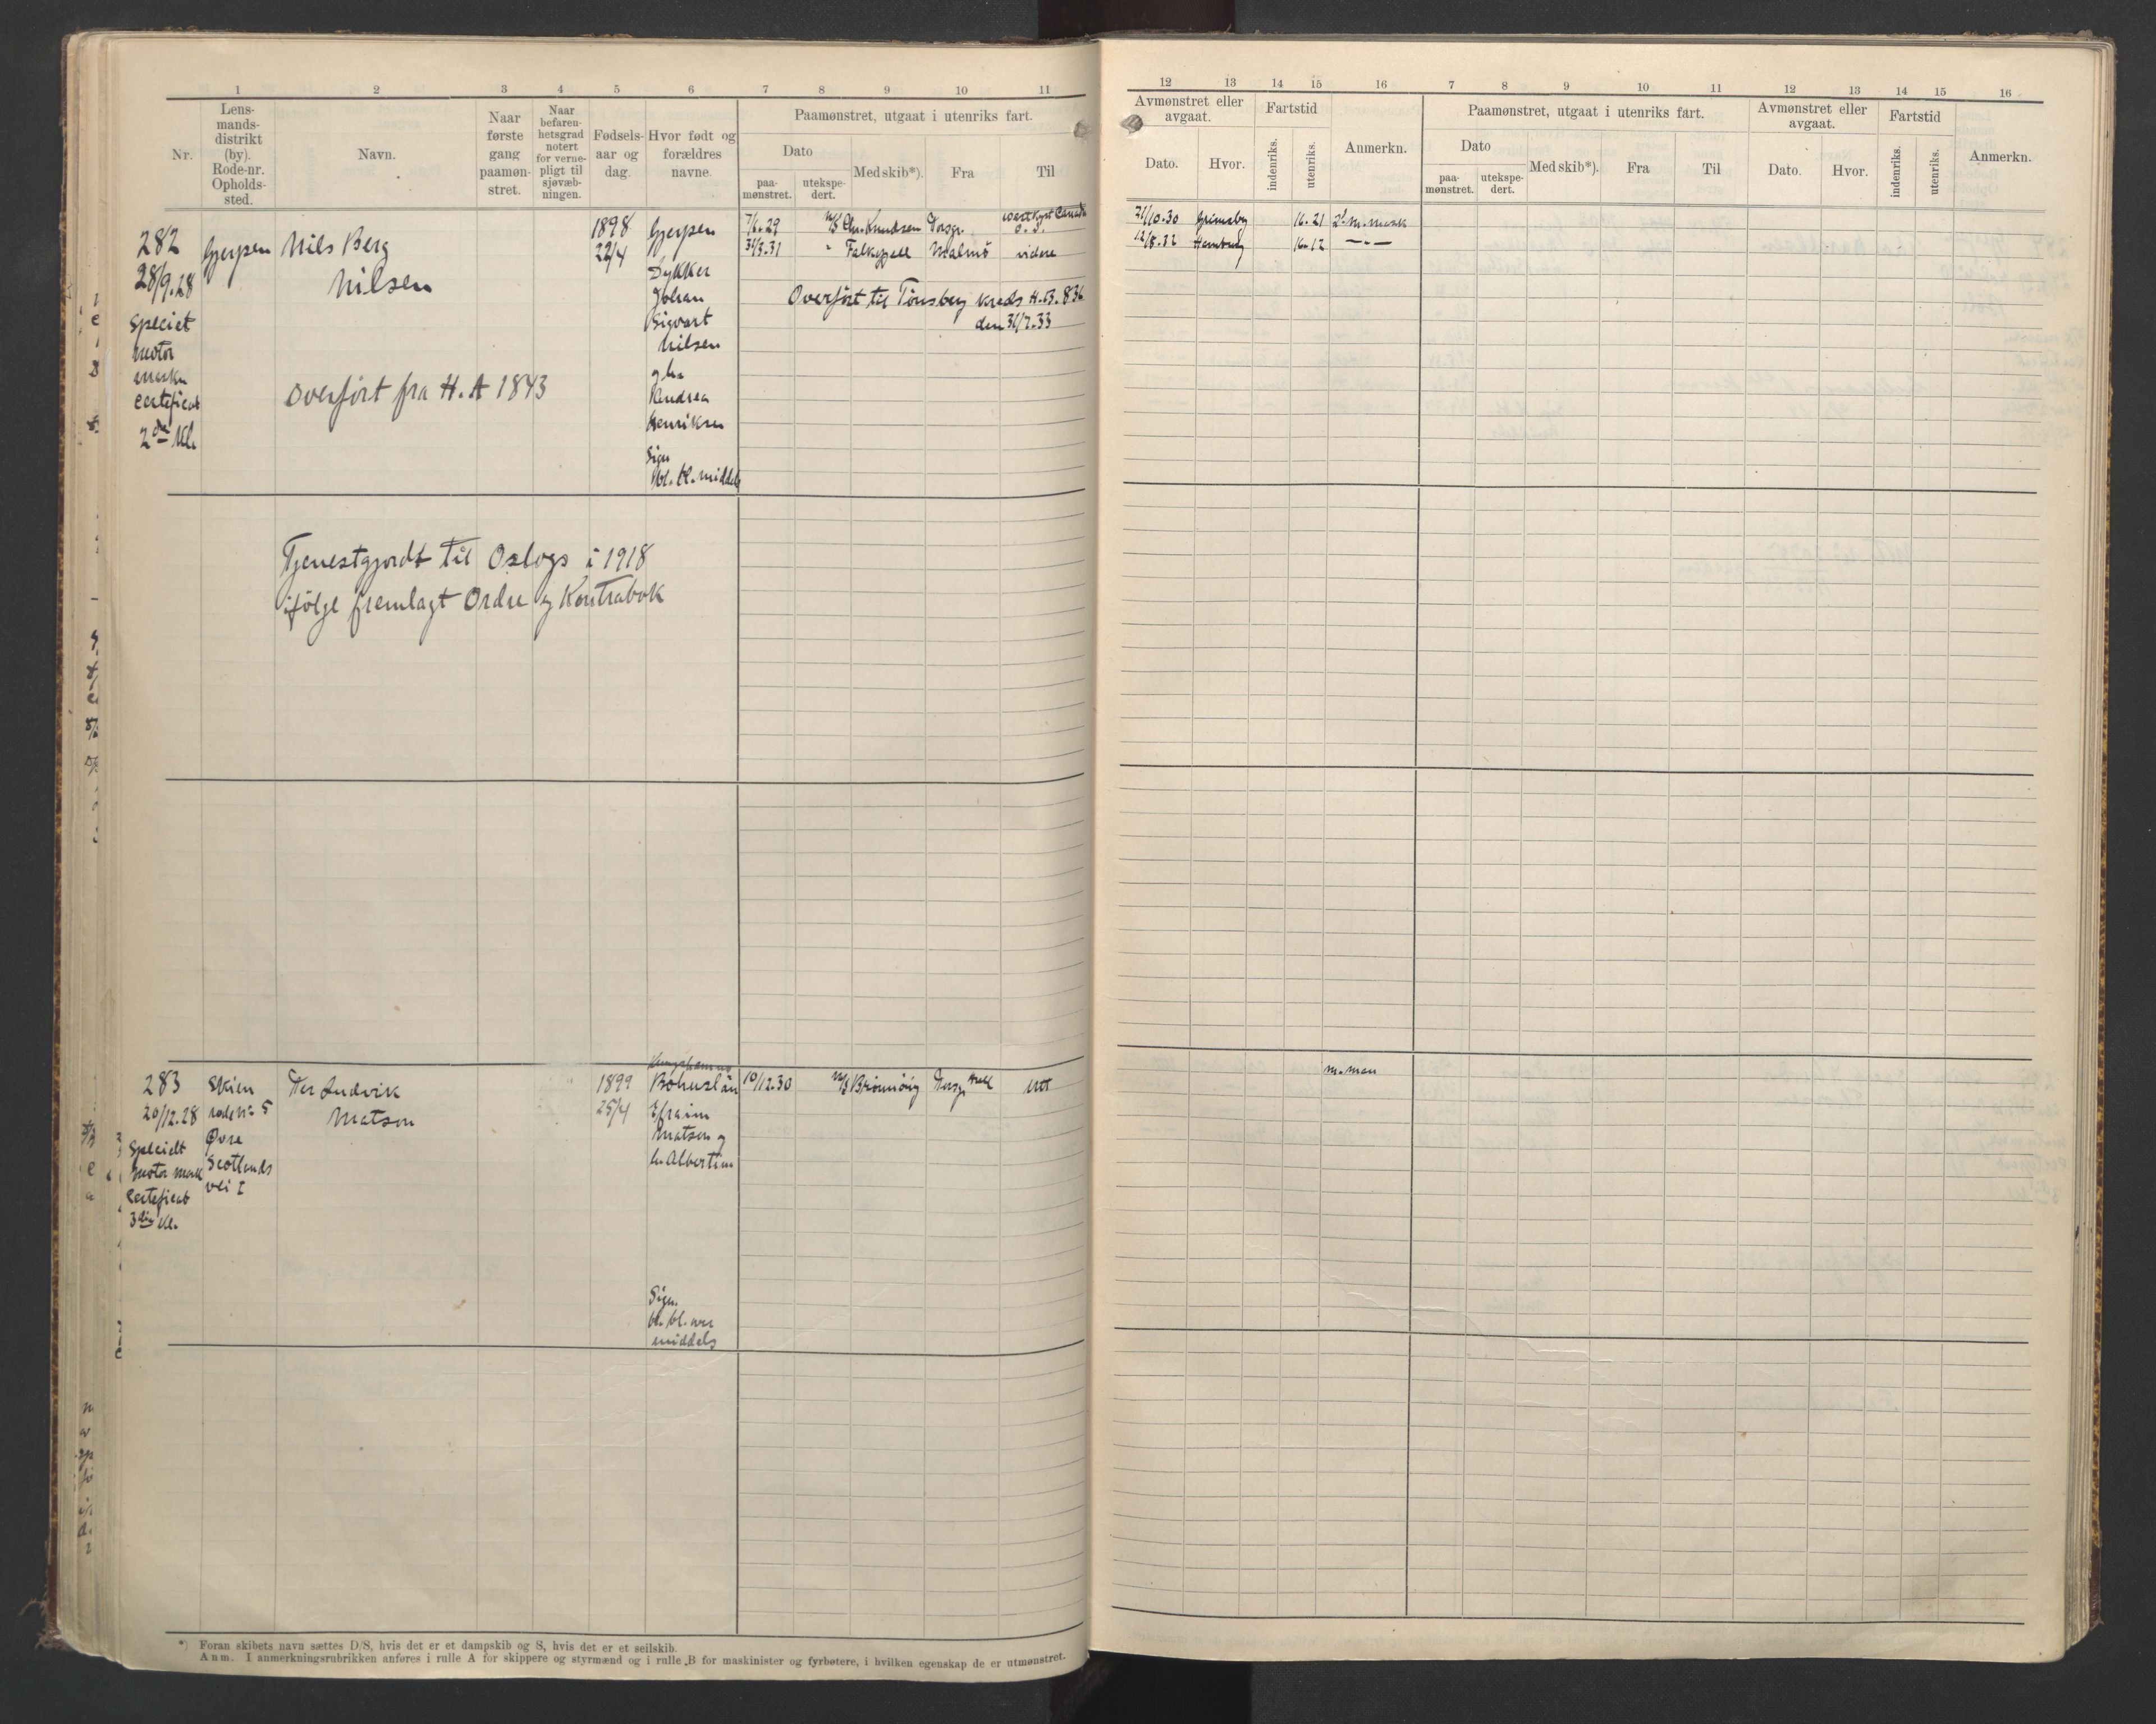 1 2 3 4 5 6 7 8 9 10 11
Nr.
Lens-
mands-
distrikt
(by).
Rode-nr.
Opholds-
sted.
Navn.
Naar
første
gang
paamøn-
stret.
Naar
befaren-
hetsgrad
notert
for verne-
pligt til
sjøvæb-
ningen.
Fødsels-
aar og
dag.
Hvor født og
forældres
navne.
Paamønstret, utgaat i utenriks fart.
Dato
paa-
mønstret.
utekspe-
dert.
Med skib*).
Fra
Til
282
28/9.28
Speciet
Motor
mask.
Certeficat
2den Kl.
Gjerpen
Nils Berg
Nilsen
Overført fra H. A 1843
1898
22/4
Gjerpen
Sykker
Johan
Sigvart
Nilsen
og hu
Andrea
Henriksen
Sign
bl. bl. middels
7/6.29 M/S Chr. Knudsen Porsgr. Westkyst Canada
o. s.
31/3.31 " Falkefjell Malmø videre
Overført til Tønsberg kreds H.B. 836
den 31/7.33
Tjenestgjordt til Oslogs i 1918
ifølge fremlagt Ordre og Kontrabok
283
20/12.28
Specielt
Motor mask
Certeficat
3die Kl.
Skien
rode nr 5
Øvre
Scotlands
vei I
Per Ludvik
Matson
1899
25/4
Kungshamn
Bohuslän
Efraim
Matson og
hu Albertina
Sign.
bl. bl. over
middels
10/12.30 M/S Porsgr. Utl
*) Foran skibets navn sættes D/S, hvis det er et dampskib og S, hvis det er et seilskib.
Anm. I anmerkningsrubrikken anføres i rulle A for skippere og styrmænd og i rulle B for maskinister og fyrbøtere, i hvilken egenskap de er utmønstret.
12 13 14 15 16 7 8 9 10 11 12 13 14 15 16
Avmønstret eller
avgaat.
Dato.
Hvor.
Fartstid
indenriks.
utenriks.
Anmerkn.
Paamønstret, utgaat i utenriks fart.
Dato
paa-
mønstret.
utekspe-
dert.
Med skib*).
Fra
Til
Avmønstret eller
avgaat.
Dato.
Hvor.
Fartstid
indenriks.
utenriks.
Anmerkn.
21/10.30 Grimsby 16.21 2. m. mask
12/8.32 Hamburg 16.12 — " —
m. man